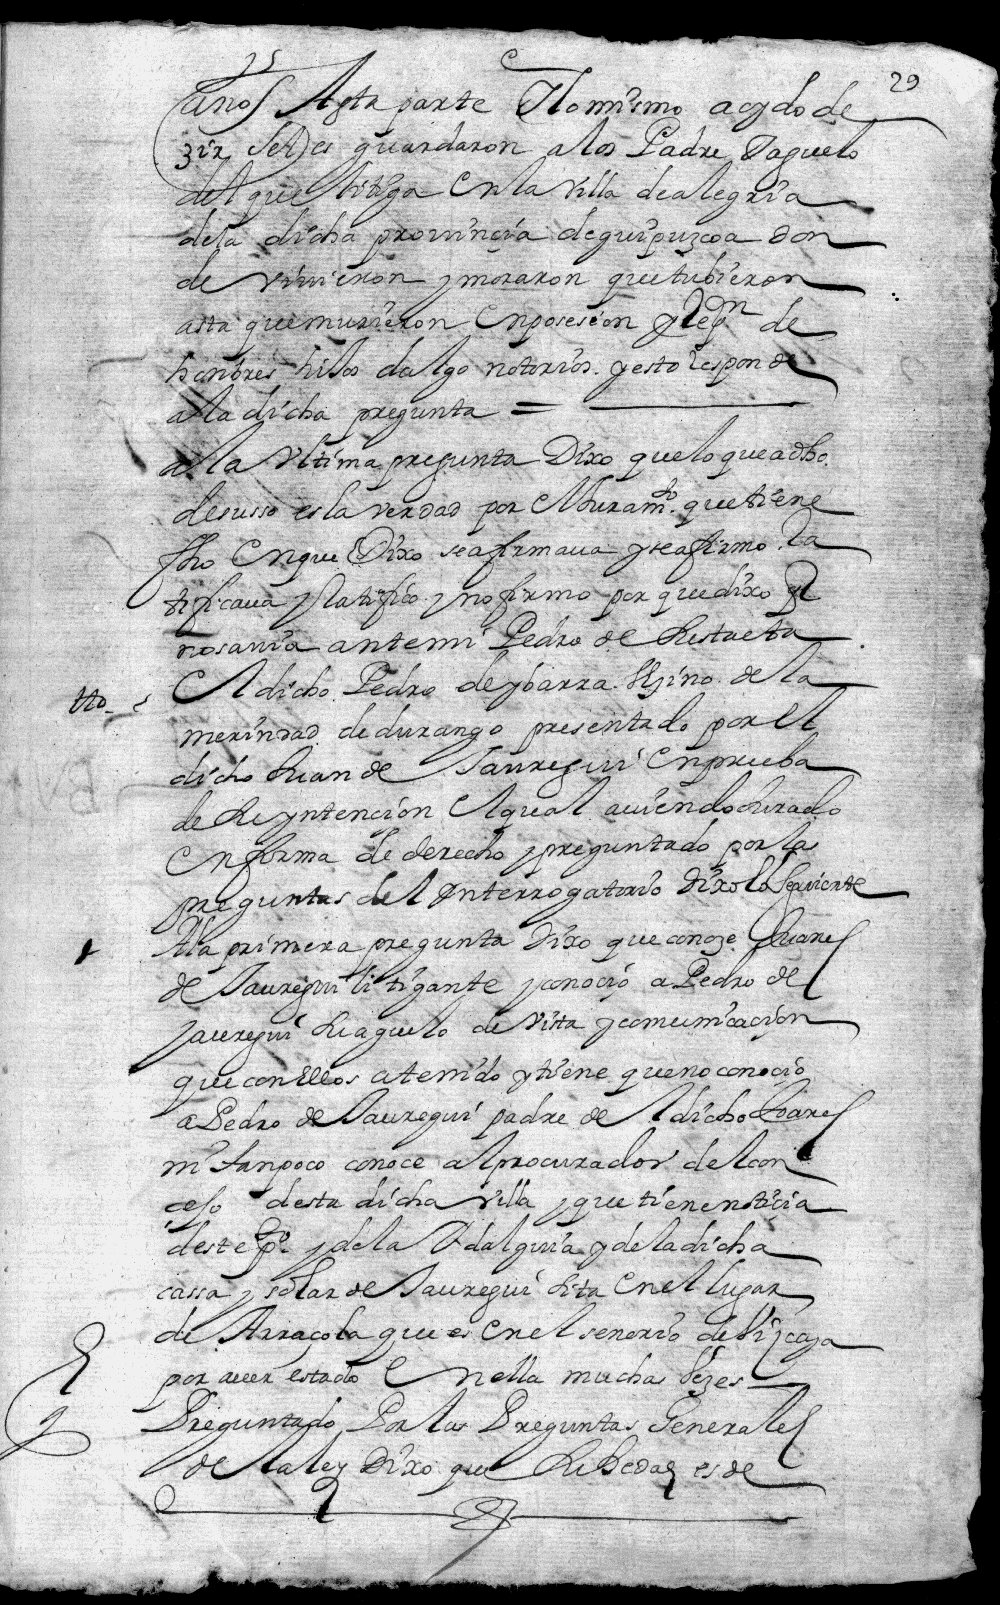 29
años Aesta parte Ylo mismo a oydo de
zir se les guardaron a los Padre Yaguelo
del que litiga En la Villa de alegria
de la dicha provincia de guipuzcoa don
de vivieron y moraron que tubieron
asta que murieron En posesion y Repn de
honbres hijos dalgo notorios. y esto Responde
a la dicha pregunta =
a la Vltima pregunta Dixo que lo que a dho
desusso es la verdad por El Juramto que tiene
fho En que Dixo se afirmava y se afirmo. Ra
tificava y Ratifico. y no firmo por que dixo q
no savia ante mi Pedro de Restaeta
tto El dicho Pedro de ybarra. Vzino de la
merindad de durango presentado por El
dicho Juan de Jauregui En prueba
de su yntencion El qual aviendo Jurado
En forma de derecho y preguntado por las
preguntas del Ynterrogatorio dixo lo Siguiente
A la primera pregunta Dixo que conoze Juanes
de Jauregui litigante y conocio a Pedro de
jauregui su aguelo de vista y comunicacion
que con Ellos a tenido y tiene que no conocio
a Pedro de Jauregui padre de El dicho Juanes
ni tanpoco conoce al procurador del con
cejo desta dicha villa y que tiene noticia
deste pto y de la Ydalguia y de la dicha
cassa y solar de Jauregui Sita En el lugar
de Arracola que es En el senorio de Vizcaya
por aver estado En ella muchas Vezes
Preguntado Por las Preguntas Generales
de la ley Dixo que Su hedad es de